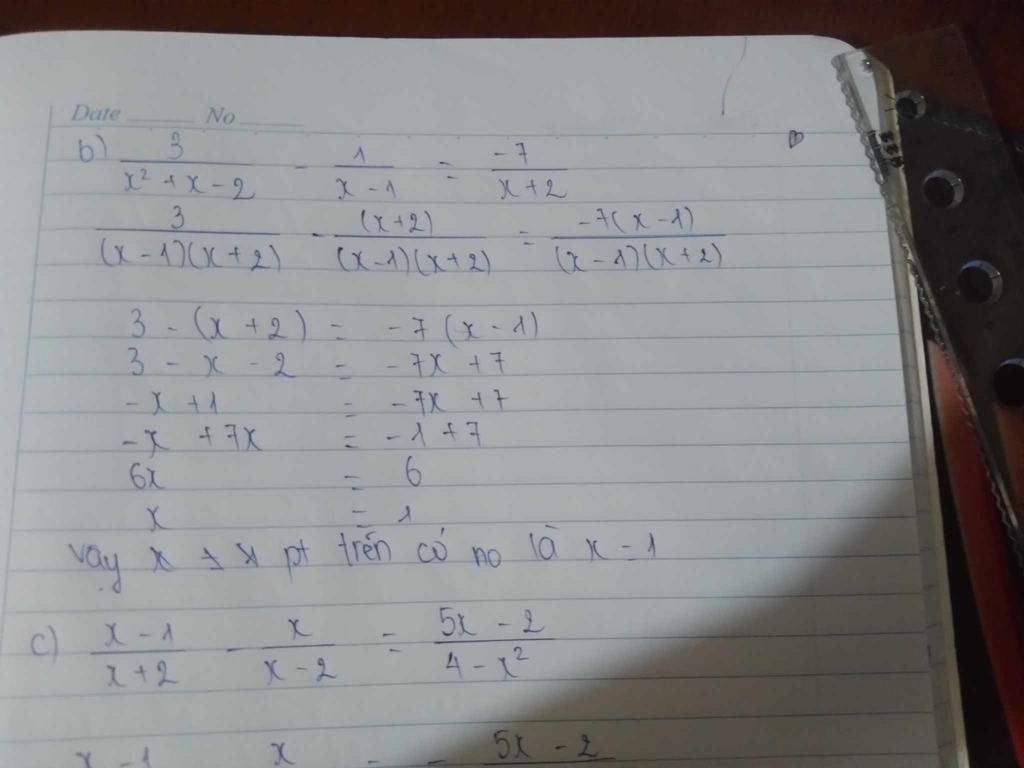 Date No
b) 3/(x² + x - 2) - 1/(x - 1) = -7/(x + 2)
3/((x - 1)(x + 2)) - (x + 2)/((x - 1)(x + 2)) = -7(x - 1)/((x - 1)(x + 2))
3 - (x + 2) = -7(x - 1)
3 - x - 2 = -7x + 7
-x + 1 = -7x + 7
-x + 7x = -1 + 7
6x = 6
x = 1
vậy pt trên có no là x = 1
c) (x - 1)/(x + 2) - x/(x - 2) = (5x - 2)/(4 - x²)
x - 1 x - - 5x - 2